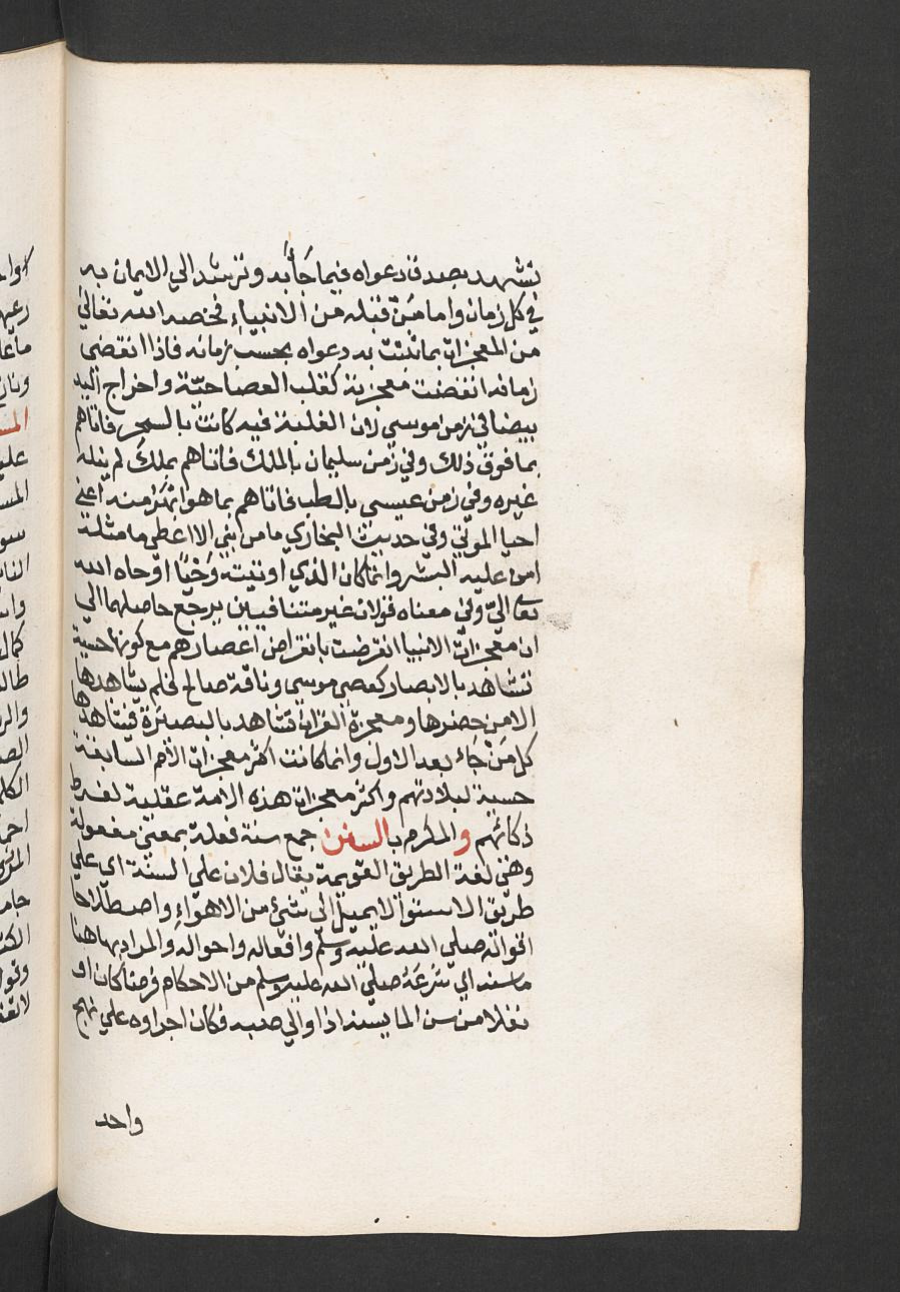 تشهد بصدق دعواه فيما جاء به وترشد الي الايمان به
في كل زمان واما من قبله من الانبياء فخصه الله تعالي
من المعجزات بما تثبت به دعواه بحسب زمانه فاذا انقضي
زمانه انقضت معجزته كقلب العصا حية واخراج اليد
بيضا في زمن موسي لان الغلبة فيه كانت بالسحر فاتاهم
بما فوق ذلك وفي زمن سليمان بالملك فاتاهم بملك لم ينله
غيره وفي زمن عيسي بالطب فاتاهم بما هو ابهر منه اعني
احيا الموتي وفي حديث البخاري ما من نبي الا اعطي ما مثله
امن عليه البشر وانما كان الذي اوتيته وحيا اوحاه الله
تعالي الي وفي معناه قولان غير متنافيين يرجع حاصلهما الي
ان معجزات الانبيا انقرضت بانقراض اعصارهم مع كونها حسية
تشاهد بالابصار كعصي موسي وناقة صالح فلم يشاهدها
الا من حضرها ومعجزة القران تشاهد بالبصيرة فيشاهدها
كل من جاء بعد الاول وانما كانت اكثر معجزات الامم السابقة
حسية لبلادتهم واكثر معجزات هذه الامة عقلية لفرط
ذكائهم والمكرم بالسنن جمع سنة فعلة بمعني مفعولة
وهي لغة الطريق القويمة يقال فلان علي السنة اي علي
طريق الاستوا لا يميل الي شيء من الاهواء واصطلاحا
اقواله صلي الله عليه وسلم وافعاله واحواله والمراد بها هنا
ما سنه اي شرعه صلي الله عليه وسلم من الاحكام فرضا كان او
نفلا من سن الما يسنه اذا والي صبه فكان اجراوه علي نهج
واحد